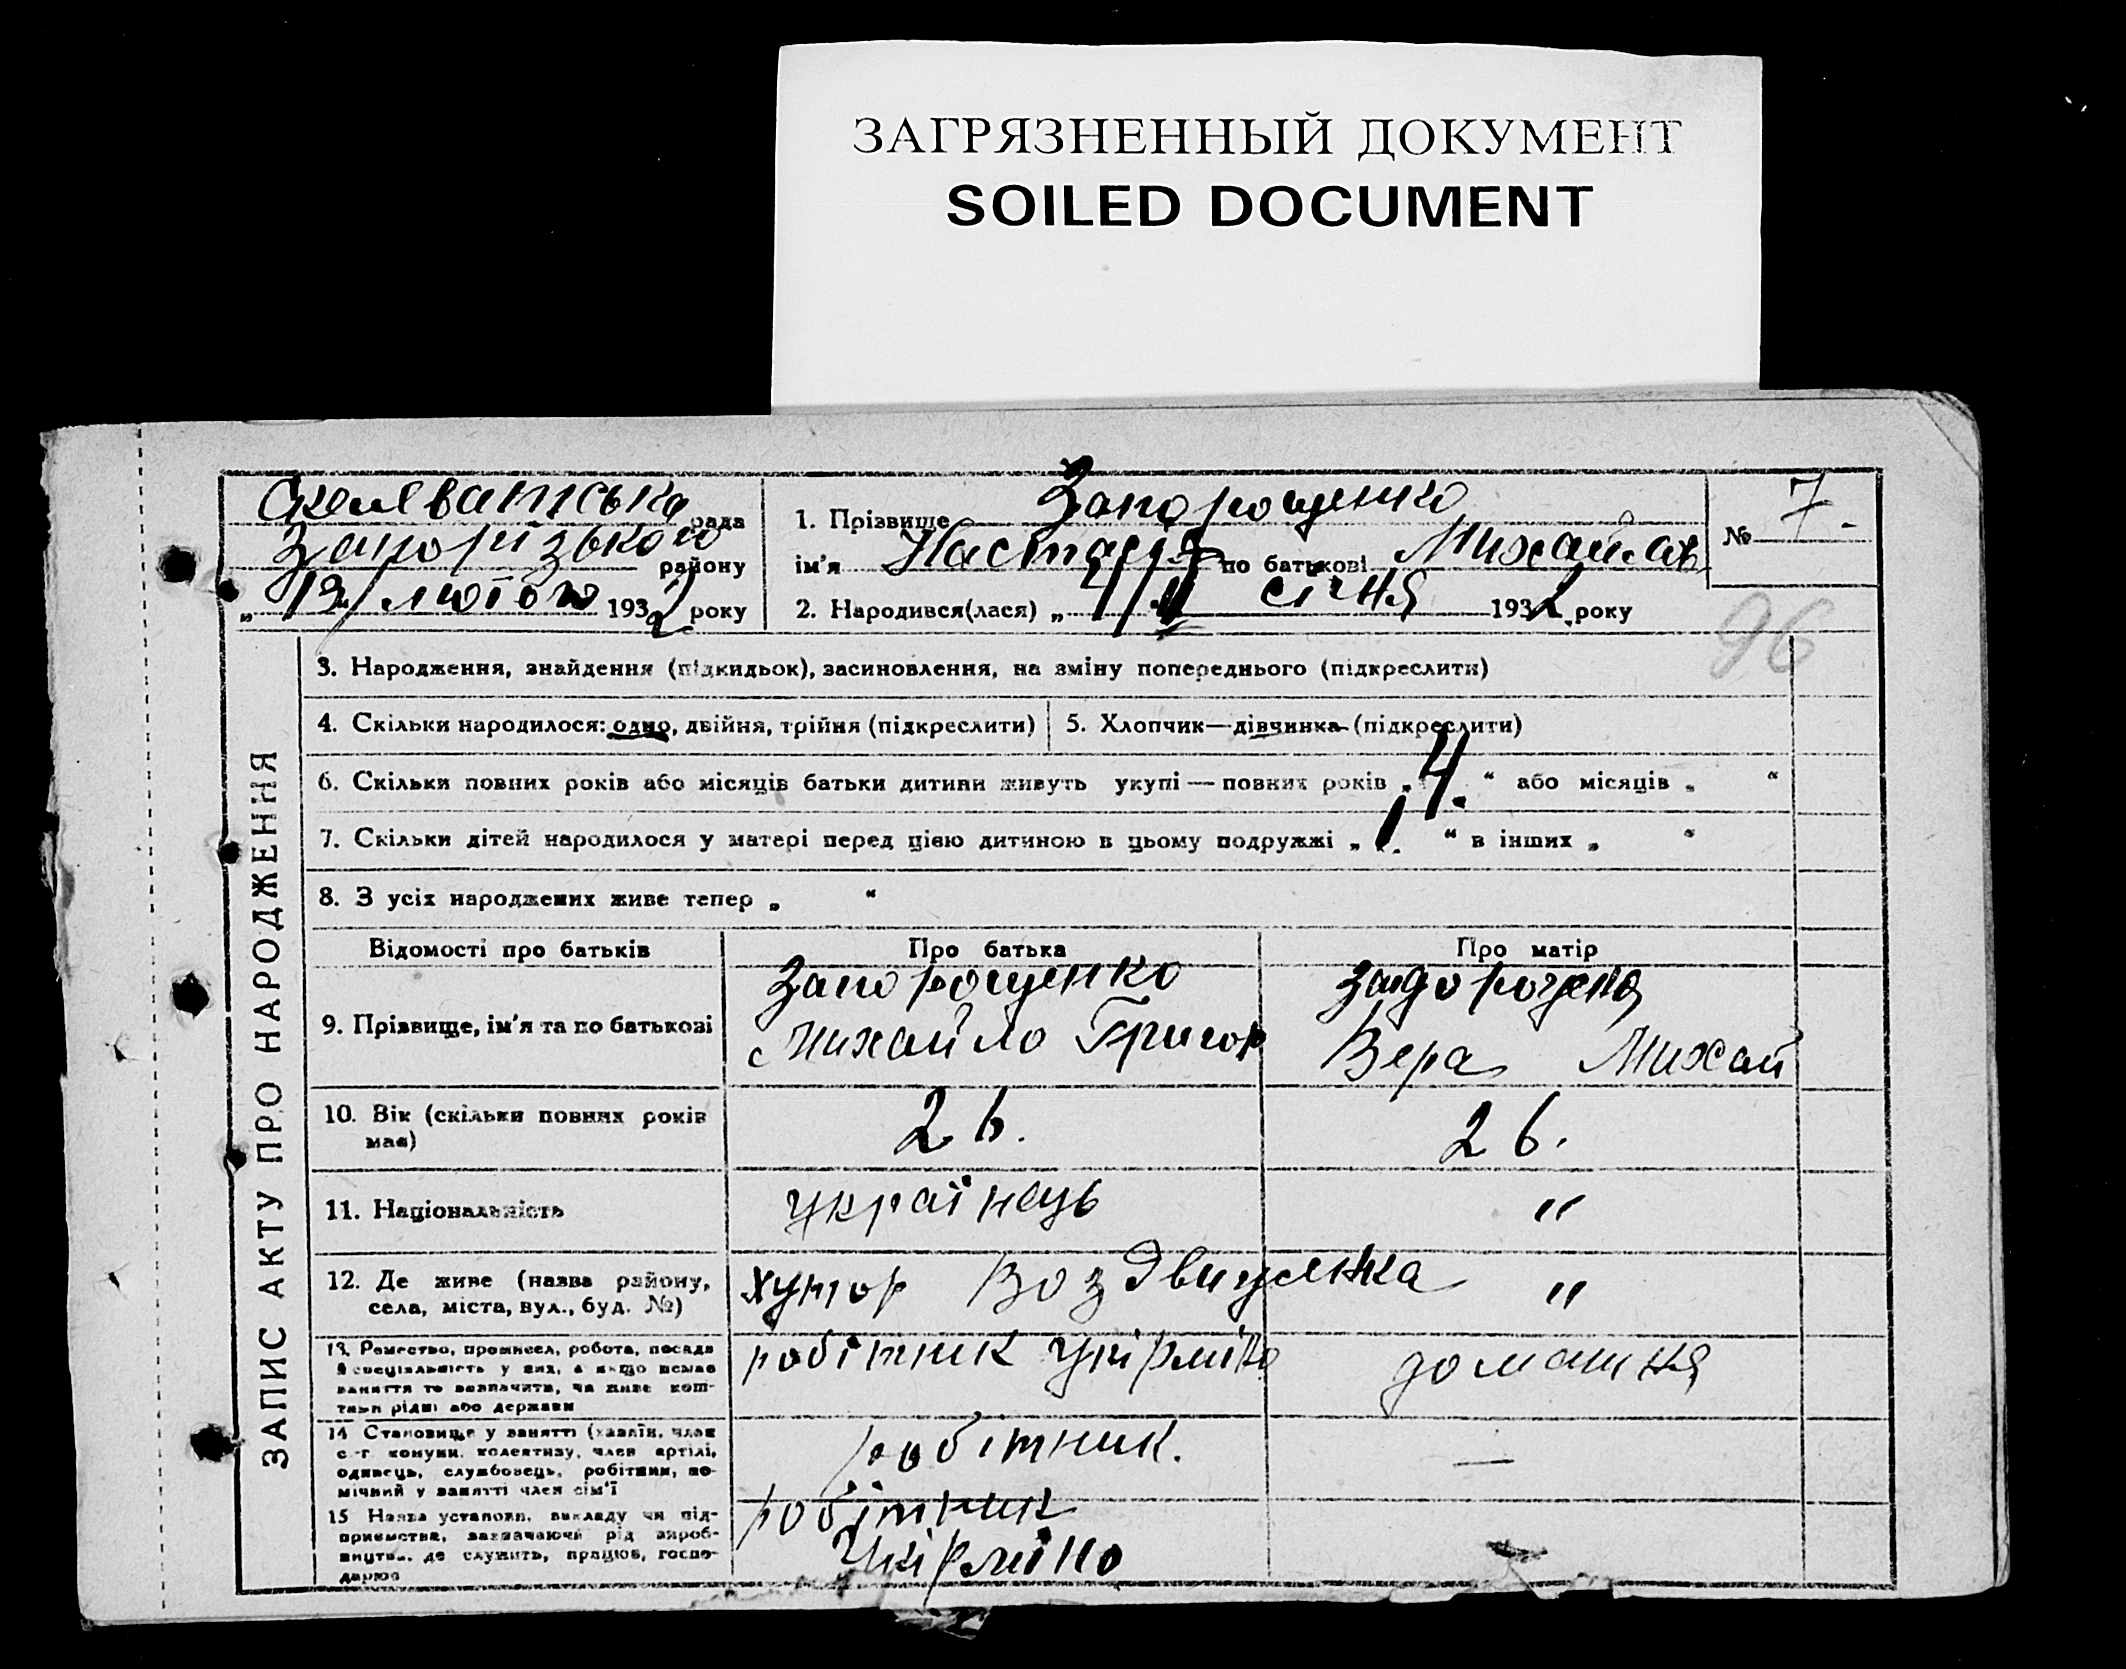 ЗАГРЯЗНЕННЫЙ ДОКУМЕНТ
SOILED DOCUMENT
Скелватська рада
Запорізького району
„13“ лютого 1932 року
1. Прізвище Запорощенко
ім'я Настасія по батькові Михайлов
2. Народився(лася) „ січня 1932 року
№ 7.
96
ЗАПИС АКТУ ПРО НАРОДЖЕННЯ
3. Народження, знайдення (підкидьок), засиновлення, на зміну попереднього (підкреслити)
4. Скільки народилося: одно, двійня, трійня (підкреслити)
5. Хлопчик—дівчинка (підкреслити)
6. Скільки повних років або місяців батьки дитини живуть укупі — повних років „4.“ або місяців „ “
7. Скільки дітей народилося у матері перед цією дитиною в цьому подружжі „1.“ в інших „ “
8. З усіх народжених живе тепер „ “
Відомості про батьків
Про батька
Про матір
9. Прізвище, ім'я та по батькові
Запорощенко
Михайло Григор
Вера Михай
10. Вік (скільки повних років
має)
26.
26.
11. Національність
українець
"
12. Де живе (назва району,
села, міста, вул., буд. №)
хутор Воздвиженка
"
13. Ремество, промисел, робота, посада
й спеціяльність у них, а якщо немає
заняття то зазначити, чи живе кош-
тами рідні або держави
робітник
домашня
14 Становище у занятті (хазяїн, член
с.-г. комуни, колективу, член артілі,
одинець, службовець, робітник, по-
мічний у занятті член сім'ї
робітник.
—
15 Назва установи, викладу чи під-
приємства, зазначаючи рід вироб-
ництва, де служить, працює, госпо-
дарює
робітник